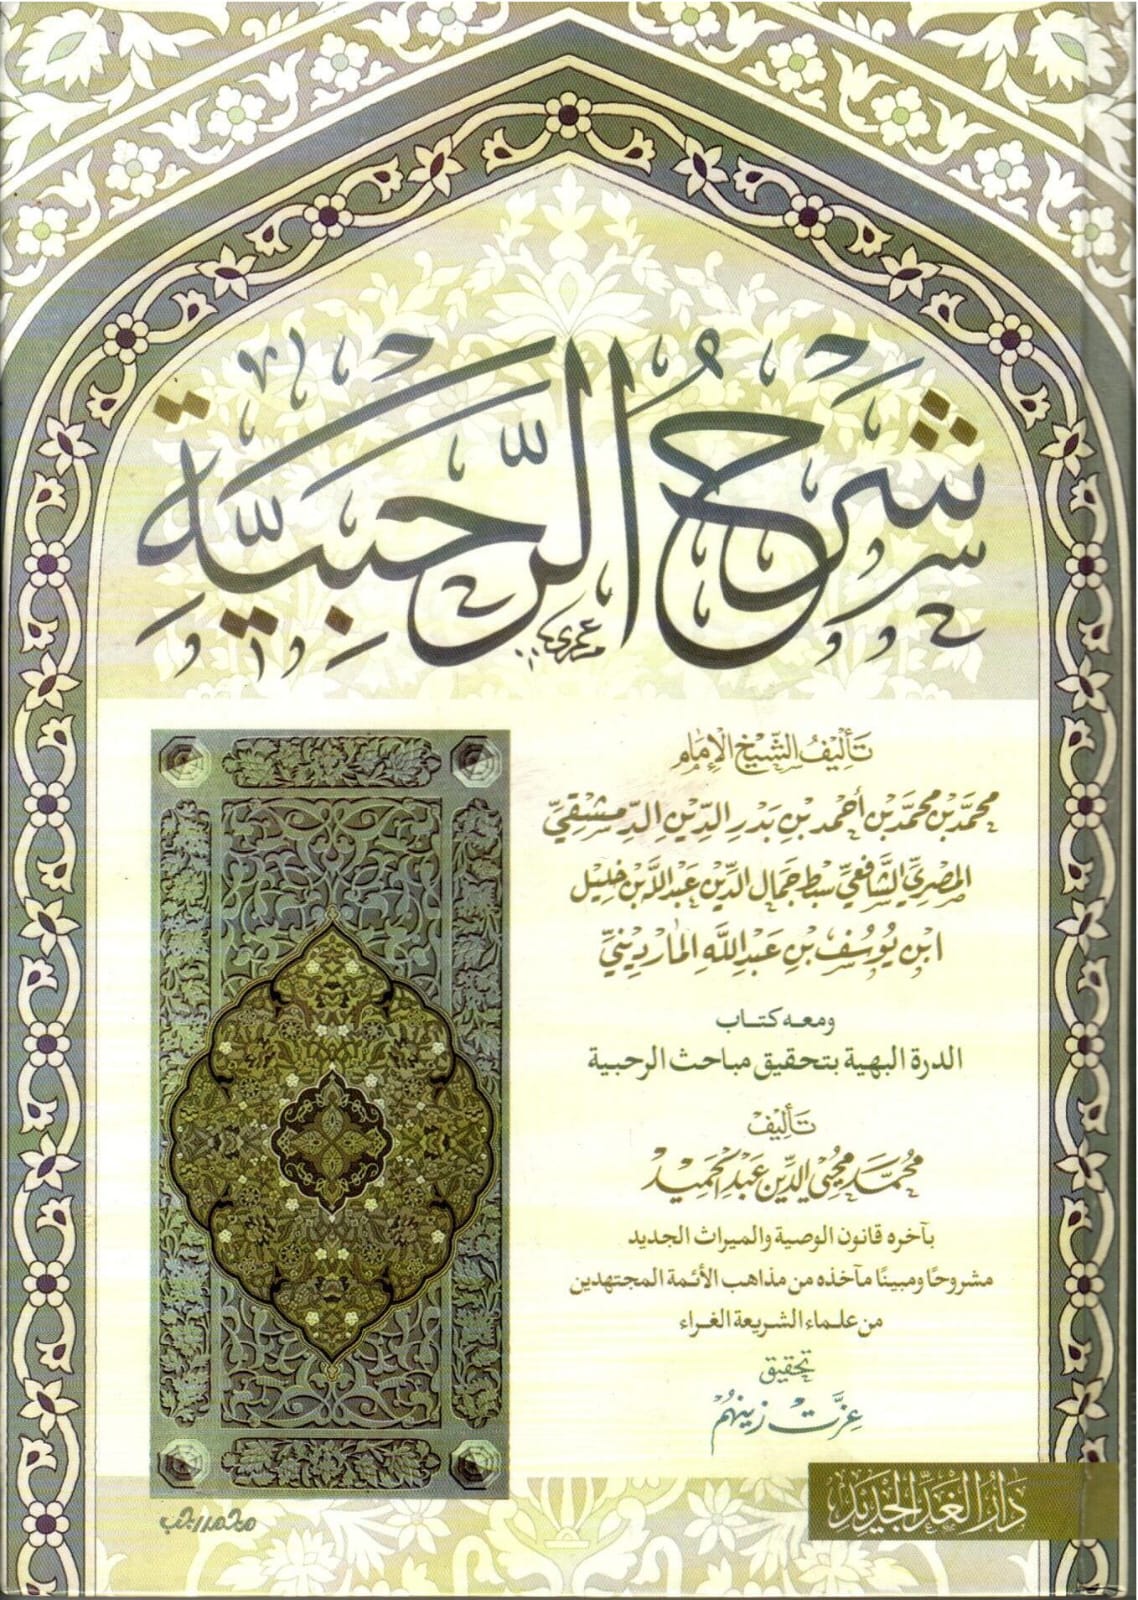 شَرْحُ الرَّحَبِيَّةِ
تَأليفُ الشَّيْخِ الإمَامِ
مُحَمَّد بْن مُحَمَّد بْن أَحْمَد بْنِ بَدْرِ الدِّيْنِ الدِّمَشْقِيِّ
المصْرِيِّ الشَّافِعِيِّ سِبط جَمَال الدِّيْنِ عَبْدِ اللَّه بْن خَلِيْل
ابْنِ يُوسُف بْنِ عَبْدِ اللَّهِ المَارِدِيْنِيِّ
ومعه كتاب
الدرة البهية بتحقيق مباحث الرحبية
تَأليفْ
مُحَمَّد مُحْيِي الدِّين عَبْد الحَمِيْد
بآخره قانون الوصية والميراث الجديد
مشروحًا ومبينًا مآخذه من مذاهب الأئمة المجتهدين
من علماء الشريعة الغراء
تحقيق
عِزَّت زينهُم
دَارُ الغَدِ الجَدِيْد
محمد رجب